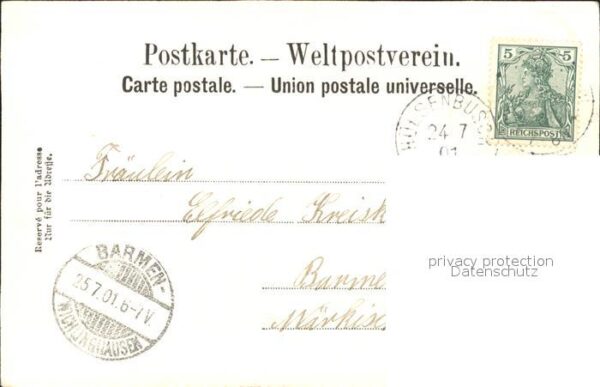 Postkarte. — Weltpostverein.
Carte postale. — Union postale universelle.
5 5
REICHSPOST
HÜLSENBUSCH
24 7
01
Reservé pour l'adresse
Nur für die Adresse.
Fräulein
Elfriede Kreisk
Barme
Märkisc
BARMEN-
25.7.01.6-7V.
WICHLINGHAUSEN
privacy protection
Datenschutz